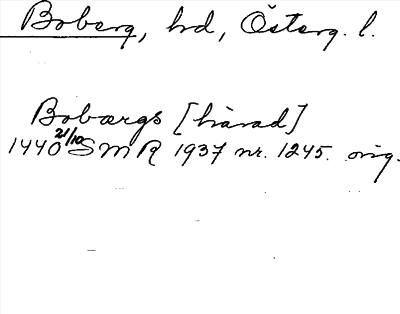 Boberg, hd, Österg. l.
Bobærgs [hærad]
1440 21/10 SMR 1937 nr. 1245. orig.